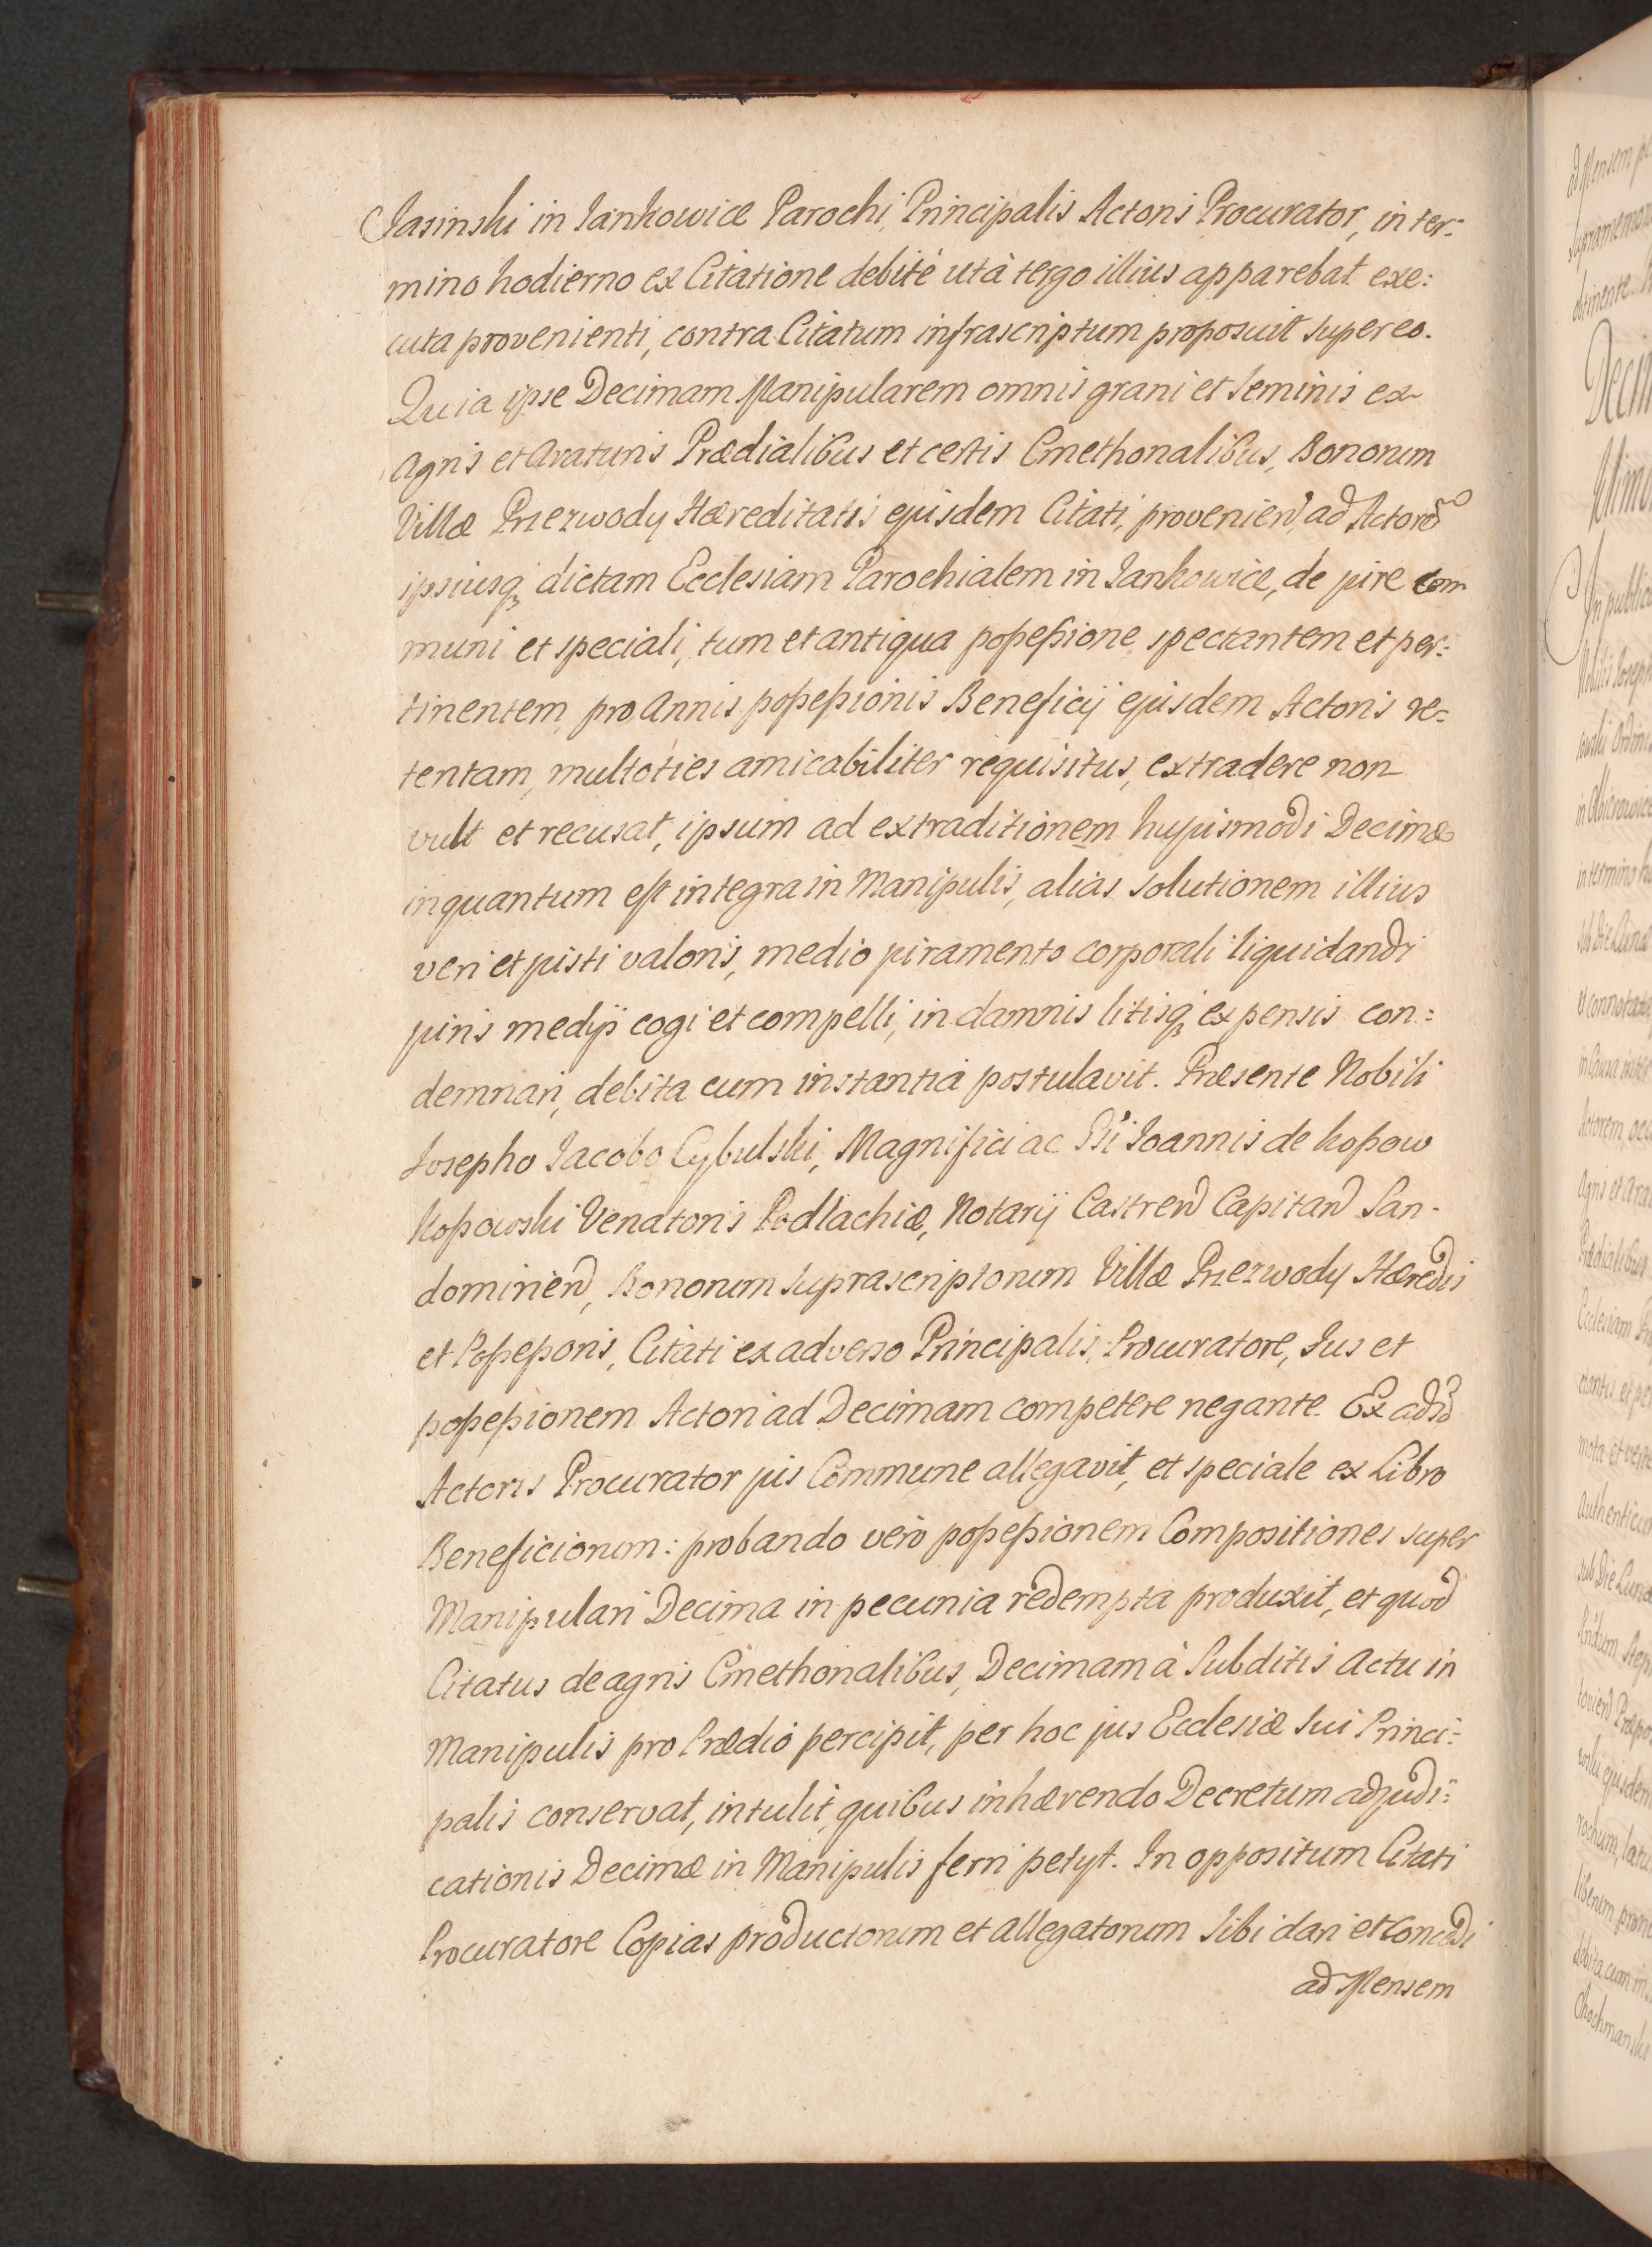 Jasinski in Jankowice Parochi, Principalis Actoris Procurator, in ter:
mino hodierno ex Citatione debitè utà tergo illius apparebat exe:
cuta provenienti, contra Citatum infrascriptum proposuit super eo.
Quia ipse Decimam Manipularem omnis grani et seminis ex
Agris et Araturis Prædialibus et certis Cmethonalibus, Bonorum
Villæ Przezwody Hæreditatis ejusdem Citati, provenien̄, ad Actorē
ipsiusq3 dictam Ecclesiam Parochialem in Jankowice, de jure com
muni et speciali, tum et antiqua poßeßione spectantem et per:
tinentem, pro Annis poßeßionis Beneficij ejusdem Actoris re:
tentam, multoties amicabiliter requisitus, extradere non
vult et recusat, ipsum ad extraditionem hujusmodi Decimæ
inquantum est integra in Manipulis, alias solutionem illius
veri et justi valoris, medio juramento corporali liquidandi
juris medijs cogi et compelli, in damnis litisq3 expensis con:
demnari, debita cum instantia postulavit. Præsente Nobili
Josepho Jacobo Cybulski, Magnifici ac Joannis de Koßow
Koßowski Venatoris Podlachiæ, Notarij Castren̄ Capitan̄ San-
domirien̄, Bonorum suprascriptorum Villæ Przezwody Hæredis
et Poßeßoris, Citati ex adverso Principalis, Procuratore, Jus et
poßeßionem Actori ad Decimam competere negante. Ex advō
Actoris Procurator jus Commune allegavit, et speciale ex Libro
Beneficiorum: probando verò poßeßionem Compositiones super
Manipulari Decima in pecunia redempta produxit, et quod
Citatus de agris Cmethonalibus, Decimam à Subditis actu in
Manipulis pro Prædio percipit, per hoc jus Ecclesiæ sui Princi:
palis conservat, intulit, quibus inhærendo Decretum adjudi:
cationis Decimæ in Manipulis ferri petyt. In oppositum Citati
Procuratore Copias productorum et allegatorum sibi dari et Concedi
ad Mensem